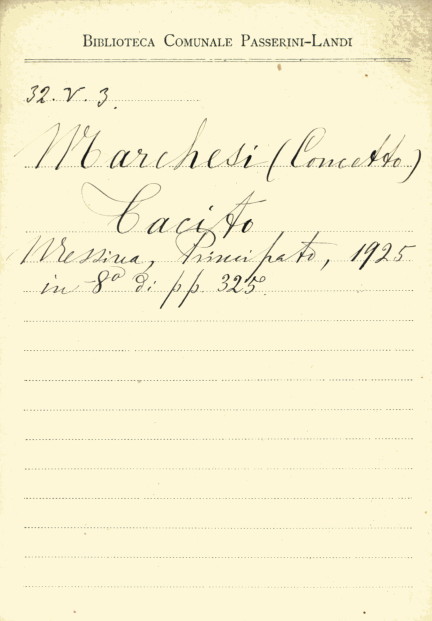 BIBLIOTECA COMUNALE PASSERINI-LANDI
32. V. 3.
Marchesi (Concetto)
Tacito
Messina, Principato, 1925
in 8° di pp. 325.